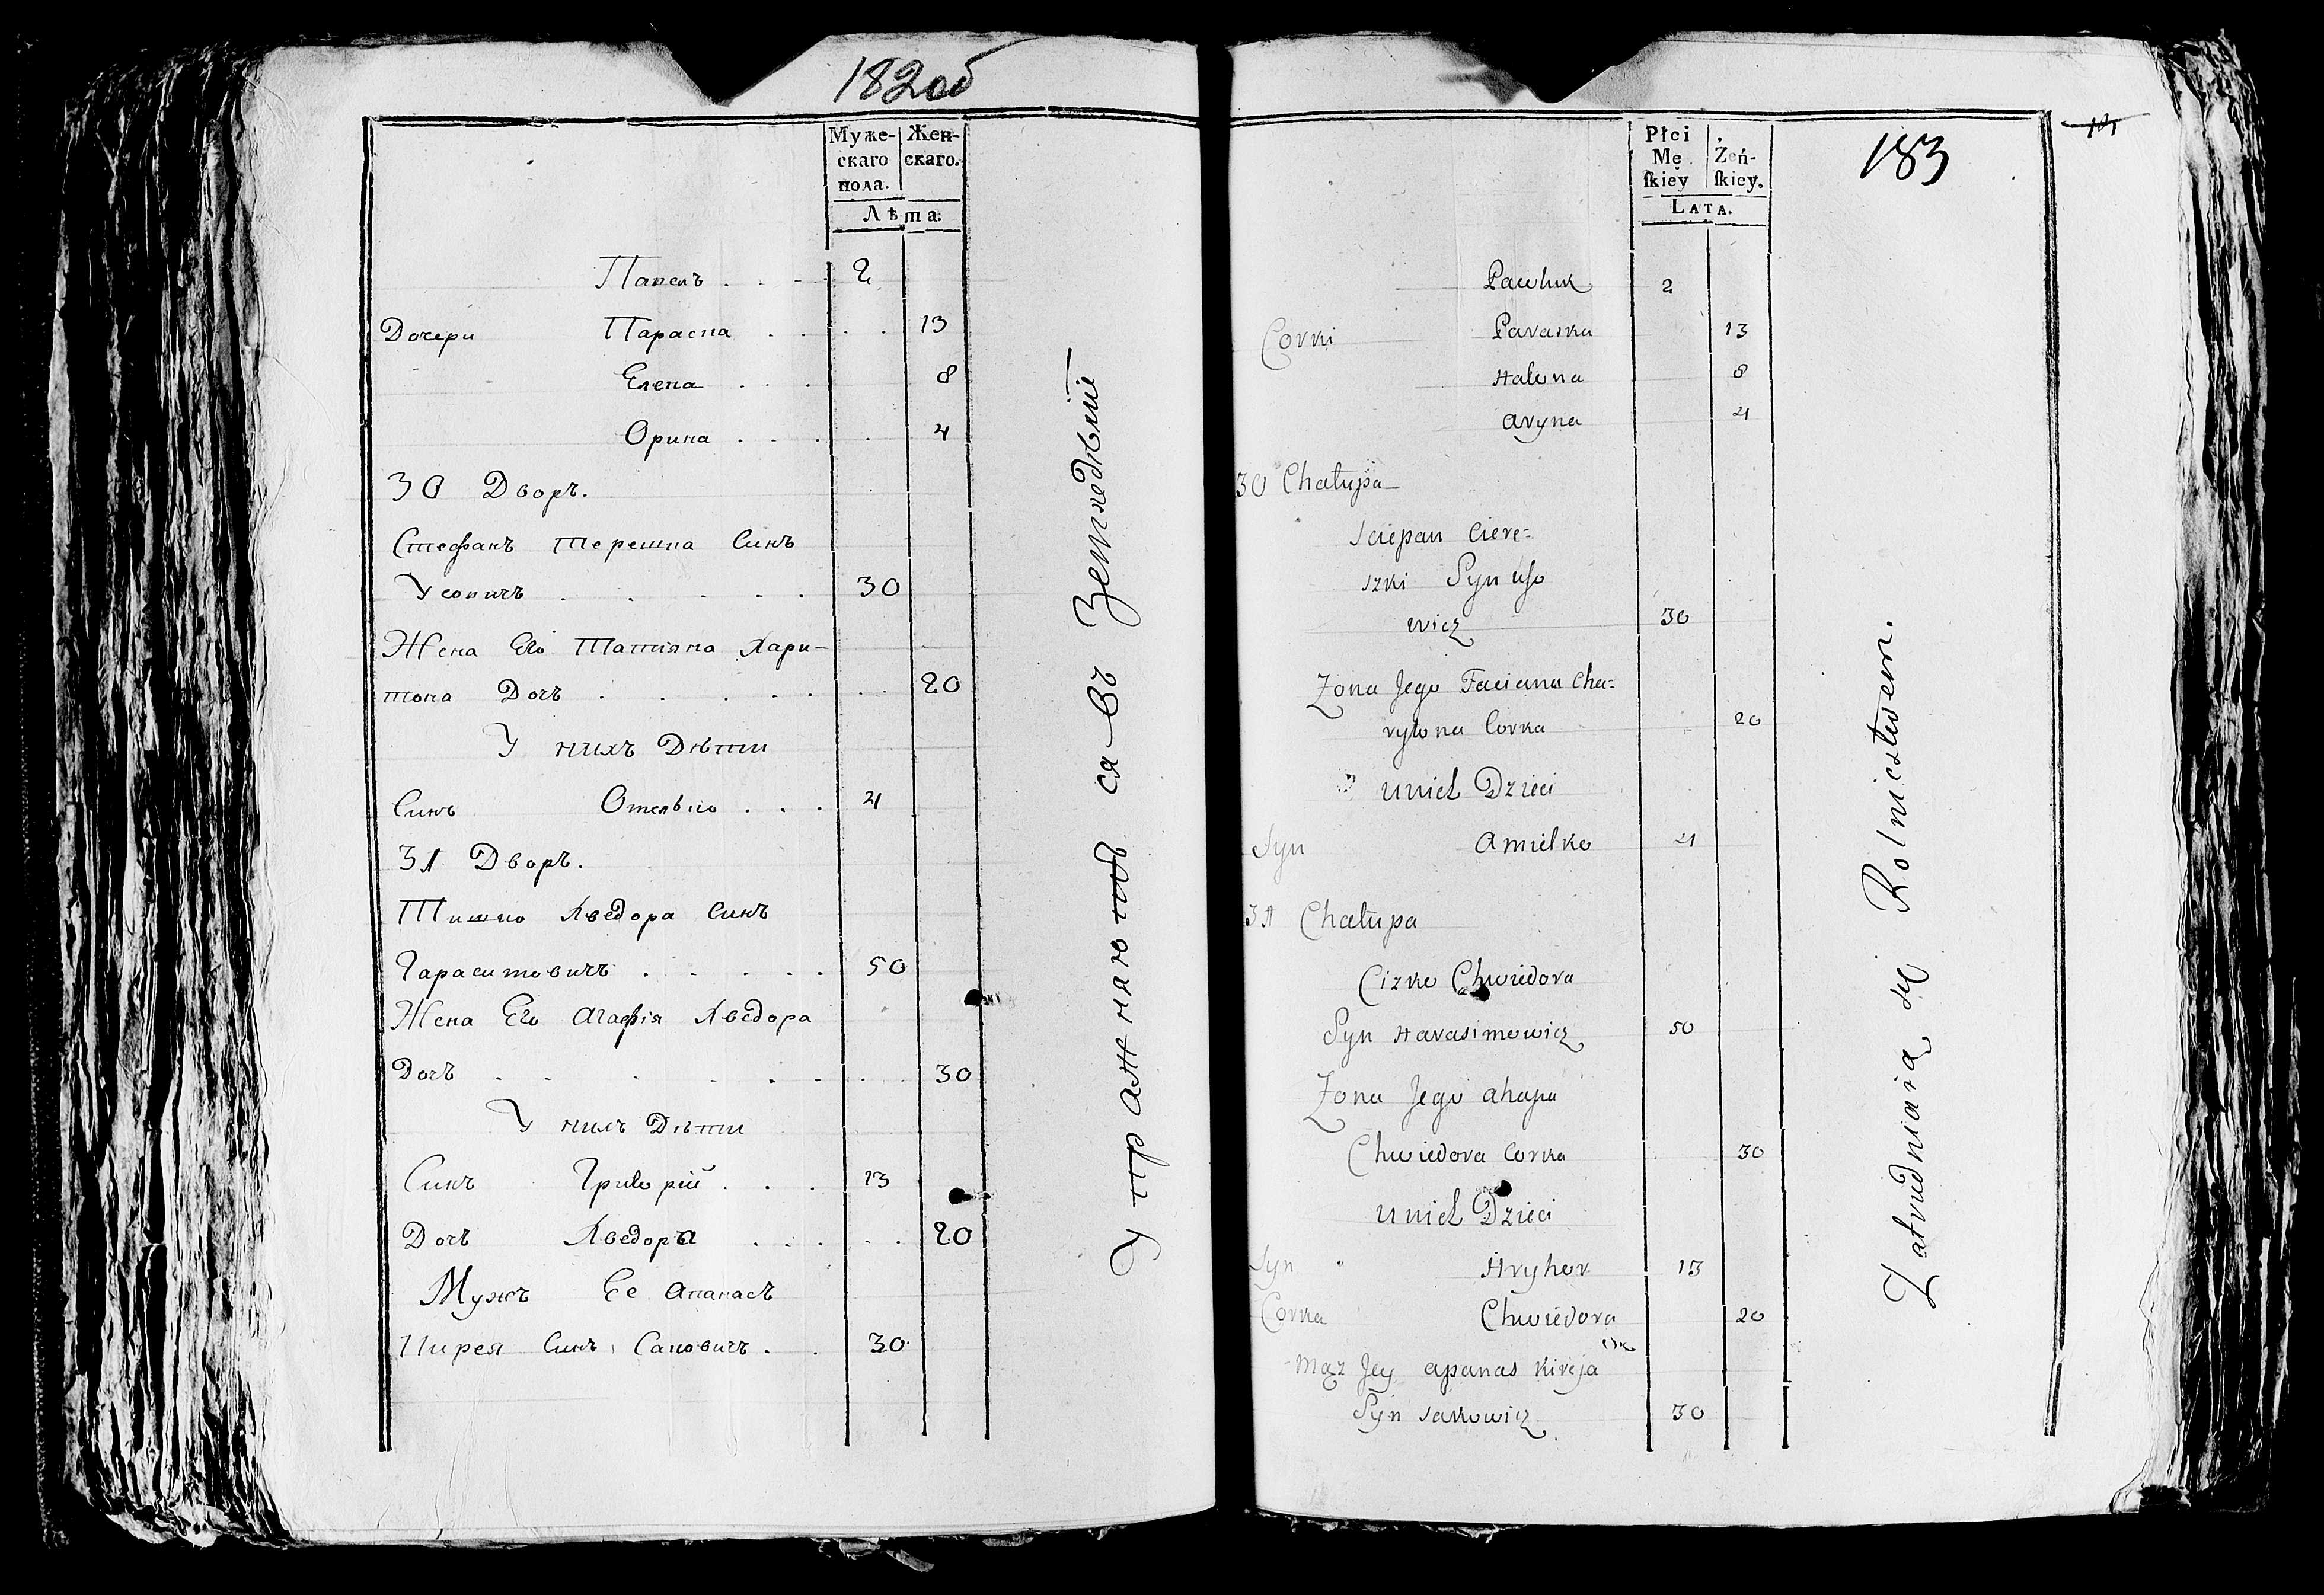 182об
Муже-
скаго
пола.
Жен-
скаго.
Лѣта.
Павелъ . . . 2
Дочери Параска . . . . 13
Елена . . . 8
Орина . . . . 4
30 Дворъ.
Стефанъ Терешка Синъ
Усовичъ . . . . . 30
Жена Его Татіяна Хари-
тона Дочъ . . . . . . . 20
У нихъ Дѣти
Синъ Омелько . . . 4
31 Дворъ.
Тишко Хведора Синъ
Гарасимовичъ . . . . . 50
Жена Его Агафія Хведора
Дочъ . . . . . . . . 30
У нихъ Дѣти
Синъ Григорій . . . 13
Дочъ Хведора . . . . . 20
Мужъ Ее Апанасъ
Кирея Синъ Саковичъ . . 30
Упражняются въ Земледѣлiи
183
Płci
Mę
ſkiey
Żeń-
ſkiey.
LATA.
Pawluk 2
Corki Paraska 13
Halena 8
Aryna 4
30 Chałupa
Sciepan Ciere=
szki Syn Uso
wicz 30
Zona Jego Taciana Cha=
rytona Corka 20
U nich Dzieci
Syn Amielko 4
31 Chałupa
Ciszko Chwiedora
Syn Harasimowicz 50
Zona Jego Ahapa
Chwiedora Corka 30
U nich Dzieci
Syn Hryhor 13
Corka Chwiedora 20
Mąz Jey Apanas Kireja
Syn Sakowicz 30
Zatrudniaią się Rolnictwem.